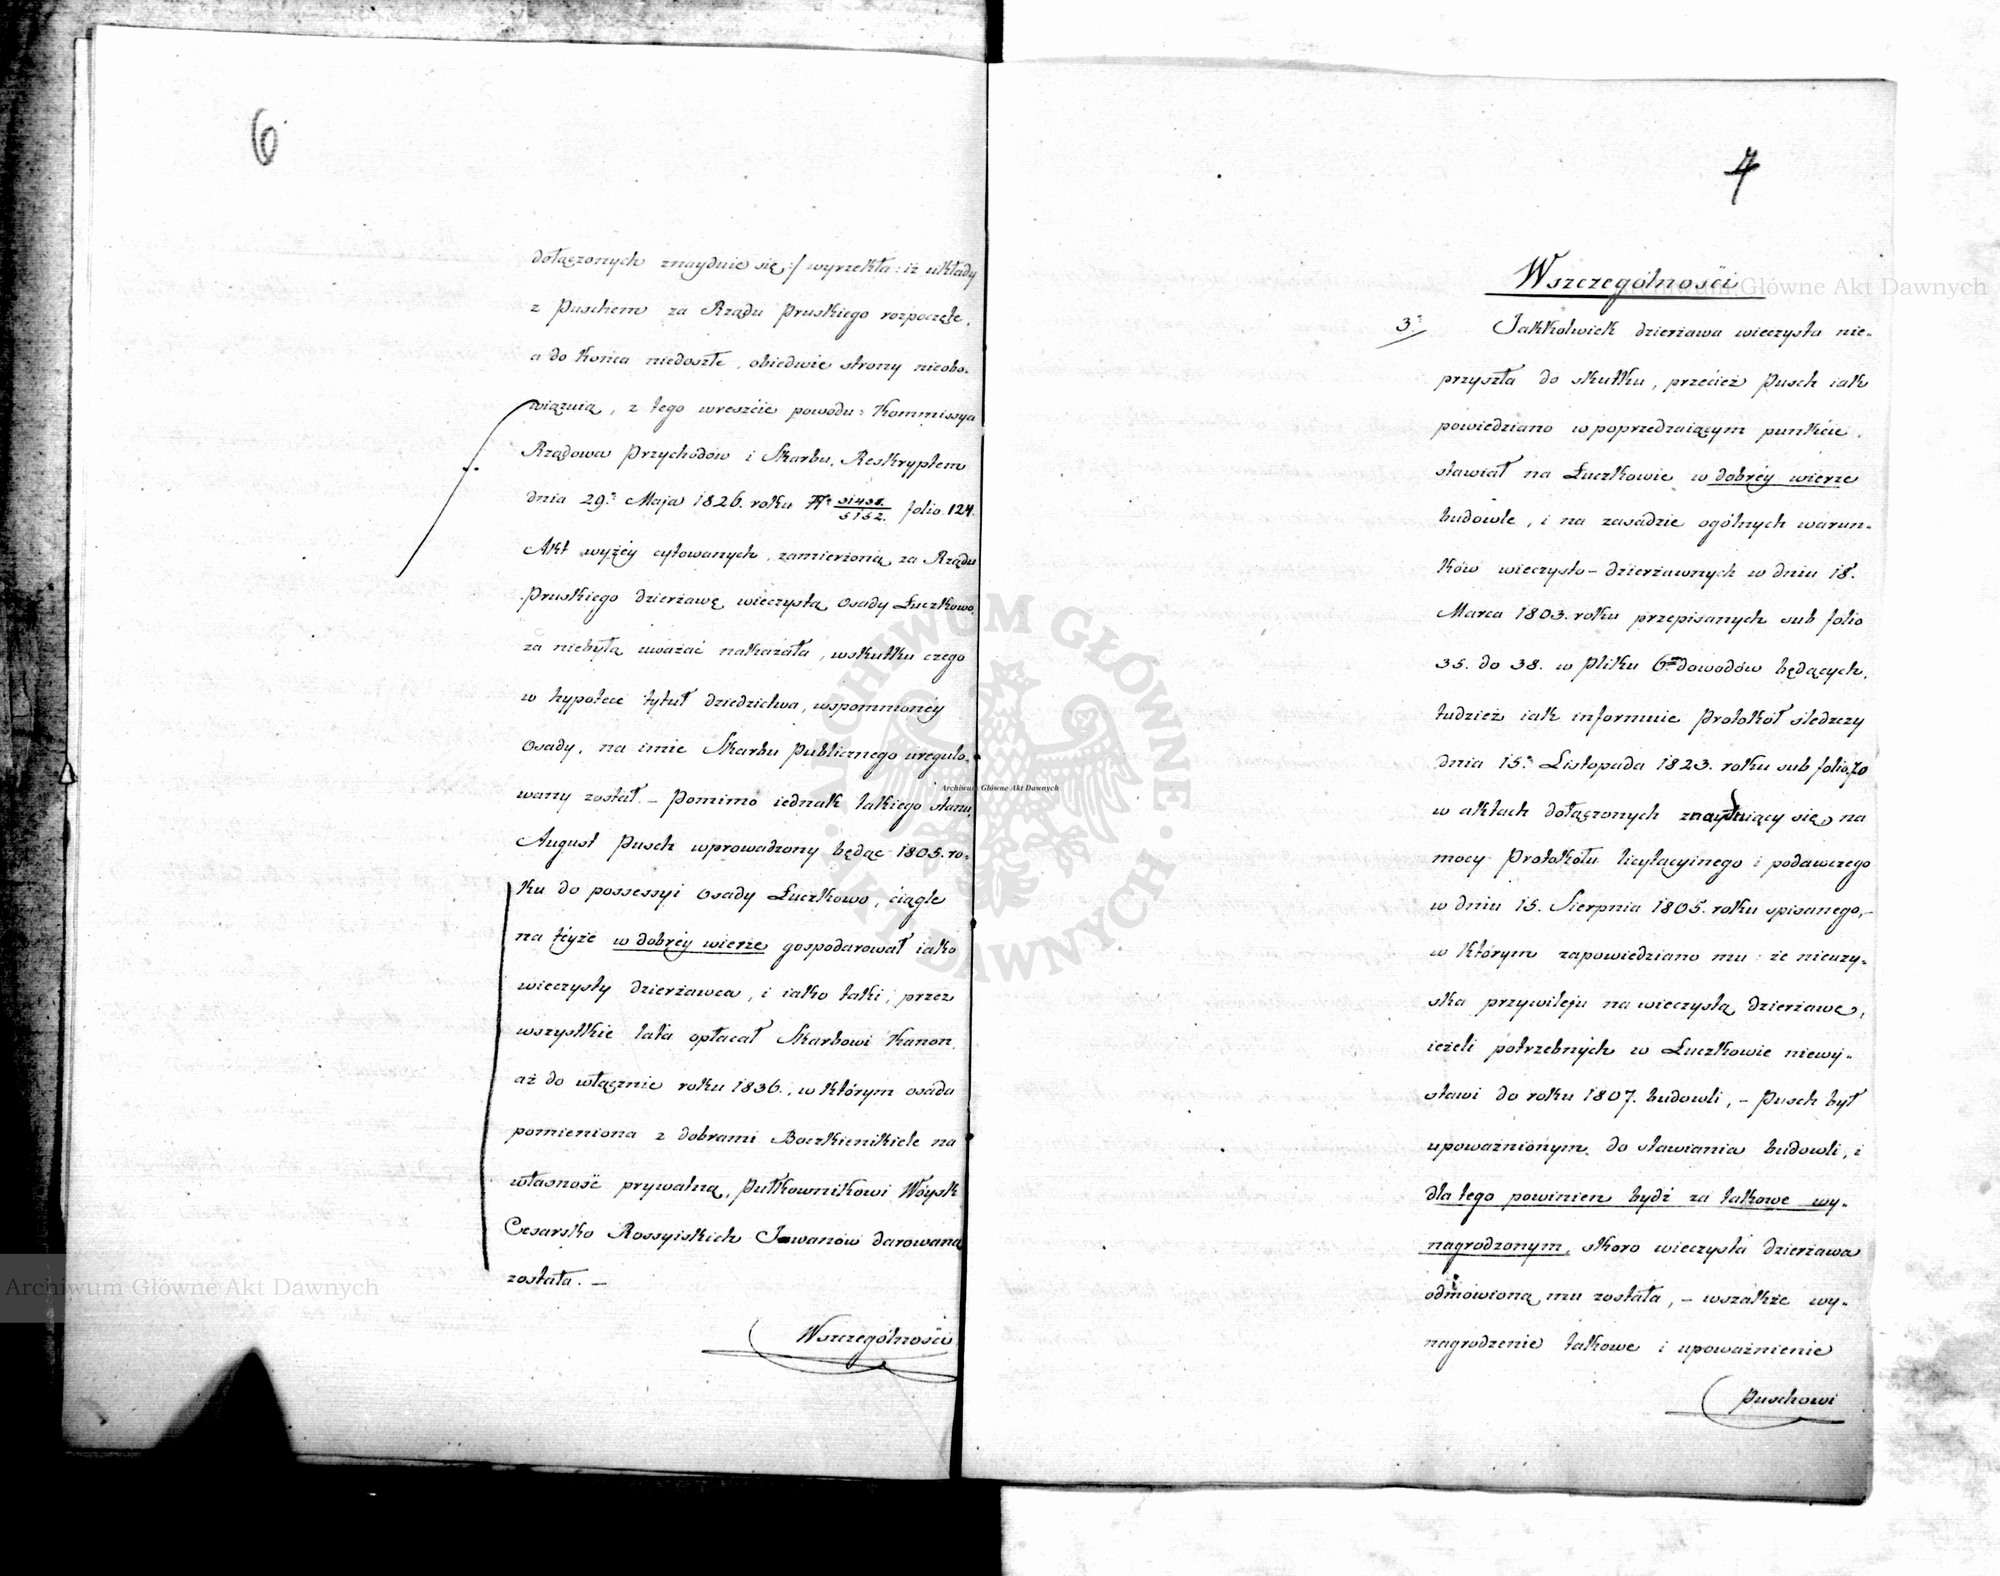 6
dołączonych znayduie się:/ wyrzekła: iż układy
z Puschem za Rządu Pruskiego rozpoczęte,
a do końca niedoszłe, obiedwie strony nieobo-
wiązuią, z tego wreszcie powodu: Kommissya
Rządowa Przychodów i Skarbu, Reskryptem
dnia 29. Maja 1826. roku folio. 124.
Akt wyżéy cytowanych, zamierzoną za Rządu
Pruskiego dzierżawę wieczystą Osady Łuczkowo,
za niebyłą uważać nakazała, wskutku czego
w hypotece tytuł dziedzictwa, wspomnionéy
Osady, na imie Skarbu Publicznego uregulo-
wany został. — Pomimo iednak takiego stanu,
August Pusch wprowadzony będąc 1805. ro-
ku do possessyi Osady Łuczkowo, ciągle
na téyże w dobréy wierze gospodarował iako
wieczysty dzierżawca, i iako taki, przez
wszystkie lata opłacał Skarbowi Kanon,
aż do włącznie roku 1836., w którym osada
pomieniona z dobrami Boczkienikiele na
własność prywatną, Pułkownikowi Wóysk
Cesarsko Rossyiskich Iwanow darowaną
została. —
Wszczególności
7
Wszczególności
3. Jakkolwiek dzierżawa wieczysta nie-
przyszła do skutku, przecież Pusch iak
powiedziano w poprzedzaiącym punkcie,
stawiał na Łuczkowie w dobréy wierze
budowle, i na zasadzie ogólnych warun-
ków wieczysto-dzierżawnych w dniu 18.
Marca 1803. roku przepisanych sub folio
35. do 38. w Pliku dowodów będących,
tudzież iak informuie Protokół śledczy
dnia 15. Listopada 1823. roku sub folio 70
w aktach dołączonych znayduiący się, na
mocy Protokółu licytacyinego i podawczego
w dniu 15. Sierpnia 1805. roku spisanego,—
w którym zapowiedziano mu: że nieuzy-
ska przywileju na wieczystą dzierżawę,
ieżeli potrzebnych w Łuczkowie niewy-
stawi do roku 1807. budowli, — Pusch był
upoważnionym do stawiania budowli, i
dla tego powinien bydź za takowe wy-
nagrodzonym, skoro wieczysta dzierżawa
odmówioną mu została, — wszakże wy-
nagrodzenie takowe i upoważnienie
Puschowi
Archiwum Główne Akt Dawnych
Archiwum Główne Akt Dawnych
Archiwum Główne Akt Dawnych
ARCHIWUM GŁÓWNE · AKT DAWNYCH ·